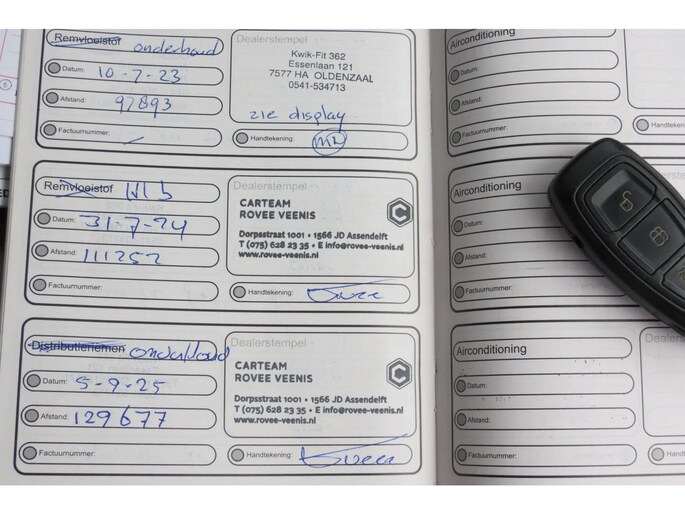 Remvloeistof onderhoud
Datum: 10-7-23
Afstand: 97893
Factuurnummer:
Dealerstempel
Kwik-Fit 362
Essenlaan 121
7577 HA OLDENZAAL
0541-534713
zie display
Handtekening:
Airconditioning
Datum:
Afstand:
Factuurnummer:
Remvloeistof
Datum: 31-7-24
Afstand: 111252
Factuurnummer:
Dealerstempel
CARTEAM
ROVEE VEENIS
Dorpsstraat 1001 • 1566 JD Assendelft
T (075) 628 23 35 • E info@rovee-veenis.nl
www.rovee-veenis.nl
Handtekening:
Airconditioning
Datum:
Afstand:
Factuurnummer:
Distributieriemen onderhoud
Datum: 5-9-25
Afstand: 129677
Factuurnummer:
Dealerstempel
CARTEAM
ROVEE VEENIS
Dorpsstraat 1001 • 1566 JD Assendelft
T (075) 628 23 35 • E info@rovee-veenis.nl
www.rovee-veenis.nl
Handtekening:
Airconditioning
Datum:
Afstand:
Factuurnummer: